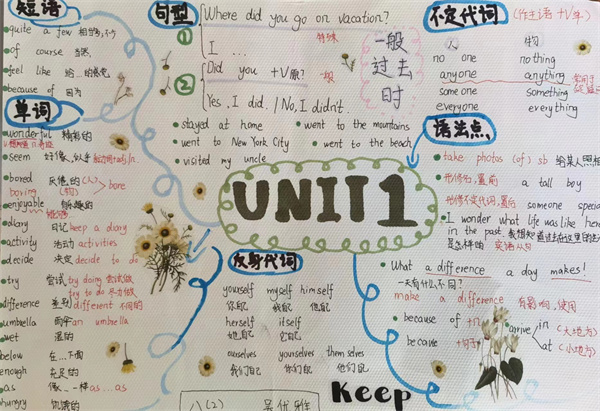 短语
quite a few 相当多,不少
of course 当然
feel like 给…的感觉
because of 因为
单词
wonderful 精彩的
seem 好像,似乎
bored 厌倦的(人)
boring (物)
bore
enjoyable 有乐趣的
diary 日记 keep a diary
activity 活动 activities
decide 决定 decide to do
try 尝试 try doing 尝试做
try to do 尽力做
difference 差别 different 不同的
umbrella 雨伞 an umbrella
wet 湿的
below 在…下面
enough 充足的
as 像…一样 as…as
hungry 饥饿的
句型
① Where did you go on vacation?
I ...
特殊
② Did you +V原?
一般
Yes, I did. / No, I didn't.
一般过去时
stayed at home
went to the mountains
went to New York City
went to the beach
visited my uncle
UNIT1
反身代词
yourself myself himself
你自己 我自己 他自己
herself itself
她自己 它自己
ourselves yourselves themselves
我们自己 你们自己 他们自己
八(2)
Keep
不定代词 (作主语 +V单)
人 物
no one nothing
anyone anything
someone something
everyone everything
语法点
take photos (of) sb 给某人照相
形修名,置前 a tall boy
形修不定代词,置后 someone special
I wonder what life was like here
in the past 我想知道过去在这里的生活
是怎样的 宾语从句
What a difference a day makes!
一天有什么不同?
make a difference 有影响,使用
because of +n
because +句子
arrive in (大地方)
at (小地方)